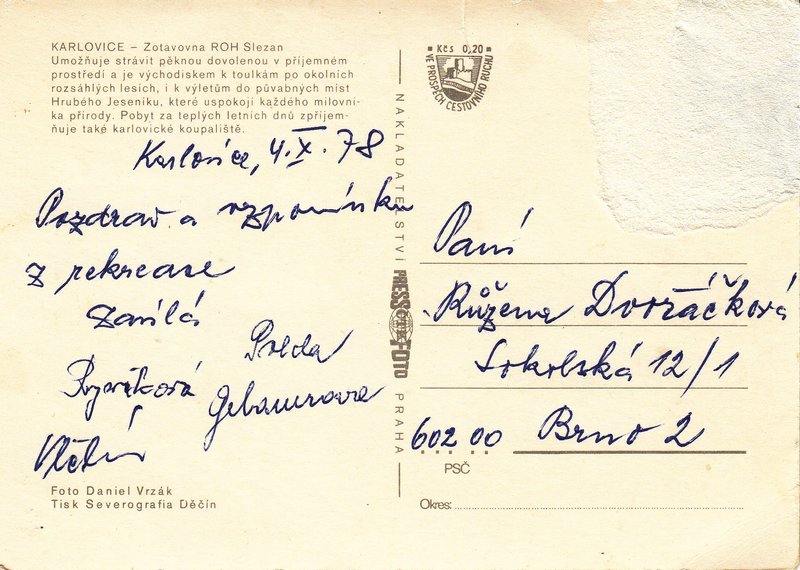 KARLOVICE – Zotavovna ROH Slezan
Umožňuje strávit pěknou dovolenou v příjemném
prostředí a je východiskem k toulkám po okolních
rozsáhlých lesích, i k výletům do půvabných míst
Hrubého Jeseníku, které uspokojí každého milovní-
ka přírody. Pobyt za teplých letních dnů zpříjem-
ňuje také karlovické koupaliště.
Karlovice, 4.X.78
Pozdrav a vzpomínku
z rekreace
zasílá
Polda
Gebauerova
Foto Daniel Vrzák
Tisk Severografia Děčín
NAKLADATELSTVÍ PRESSFOTO PRAHA
Kčs 0,20
VE PROSPĚCH CESTOVNÍHO RUCHU
Paní
Růžena Dvořáčková
Sokolská 12/1
602 00 Brno 2
PSČ
Okres: